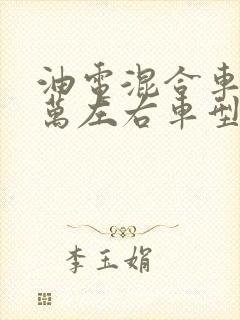 油電混合車
萬左右車型
李玉娟